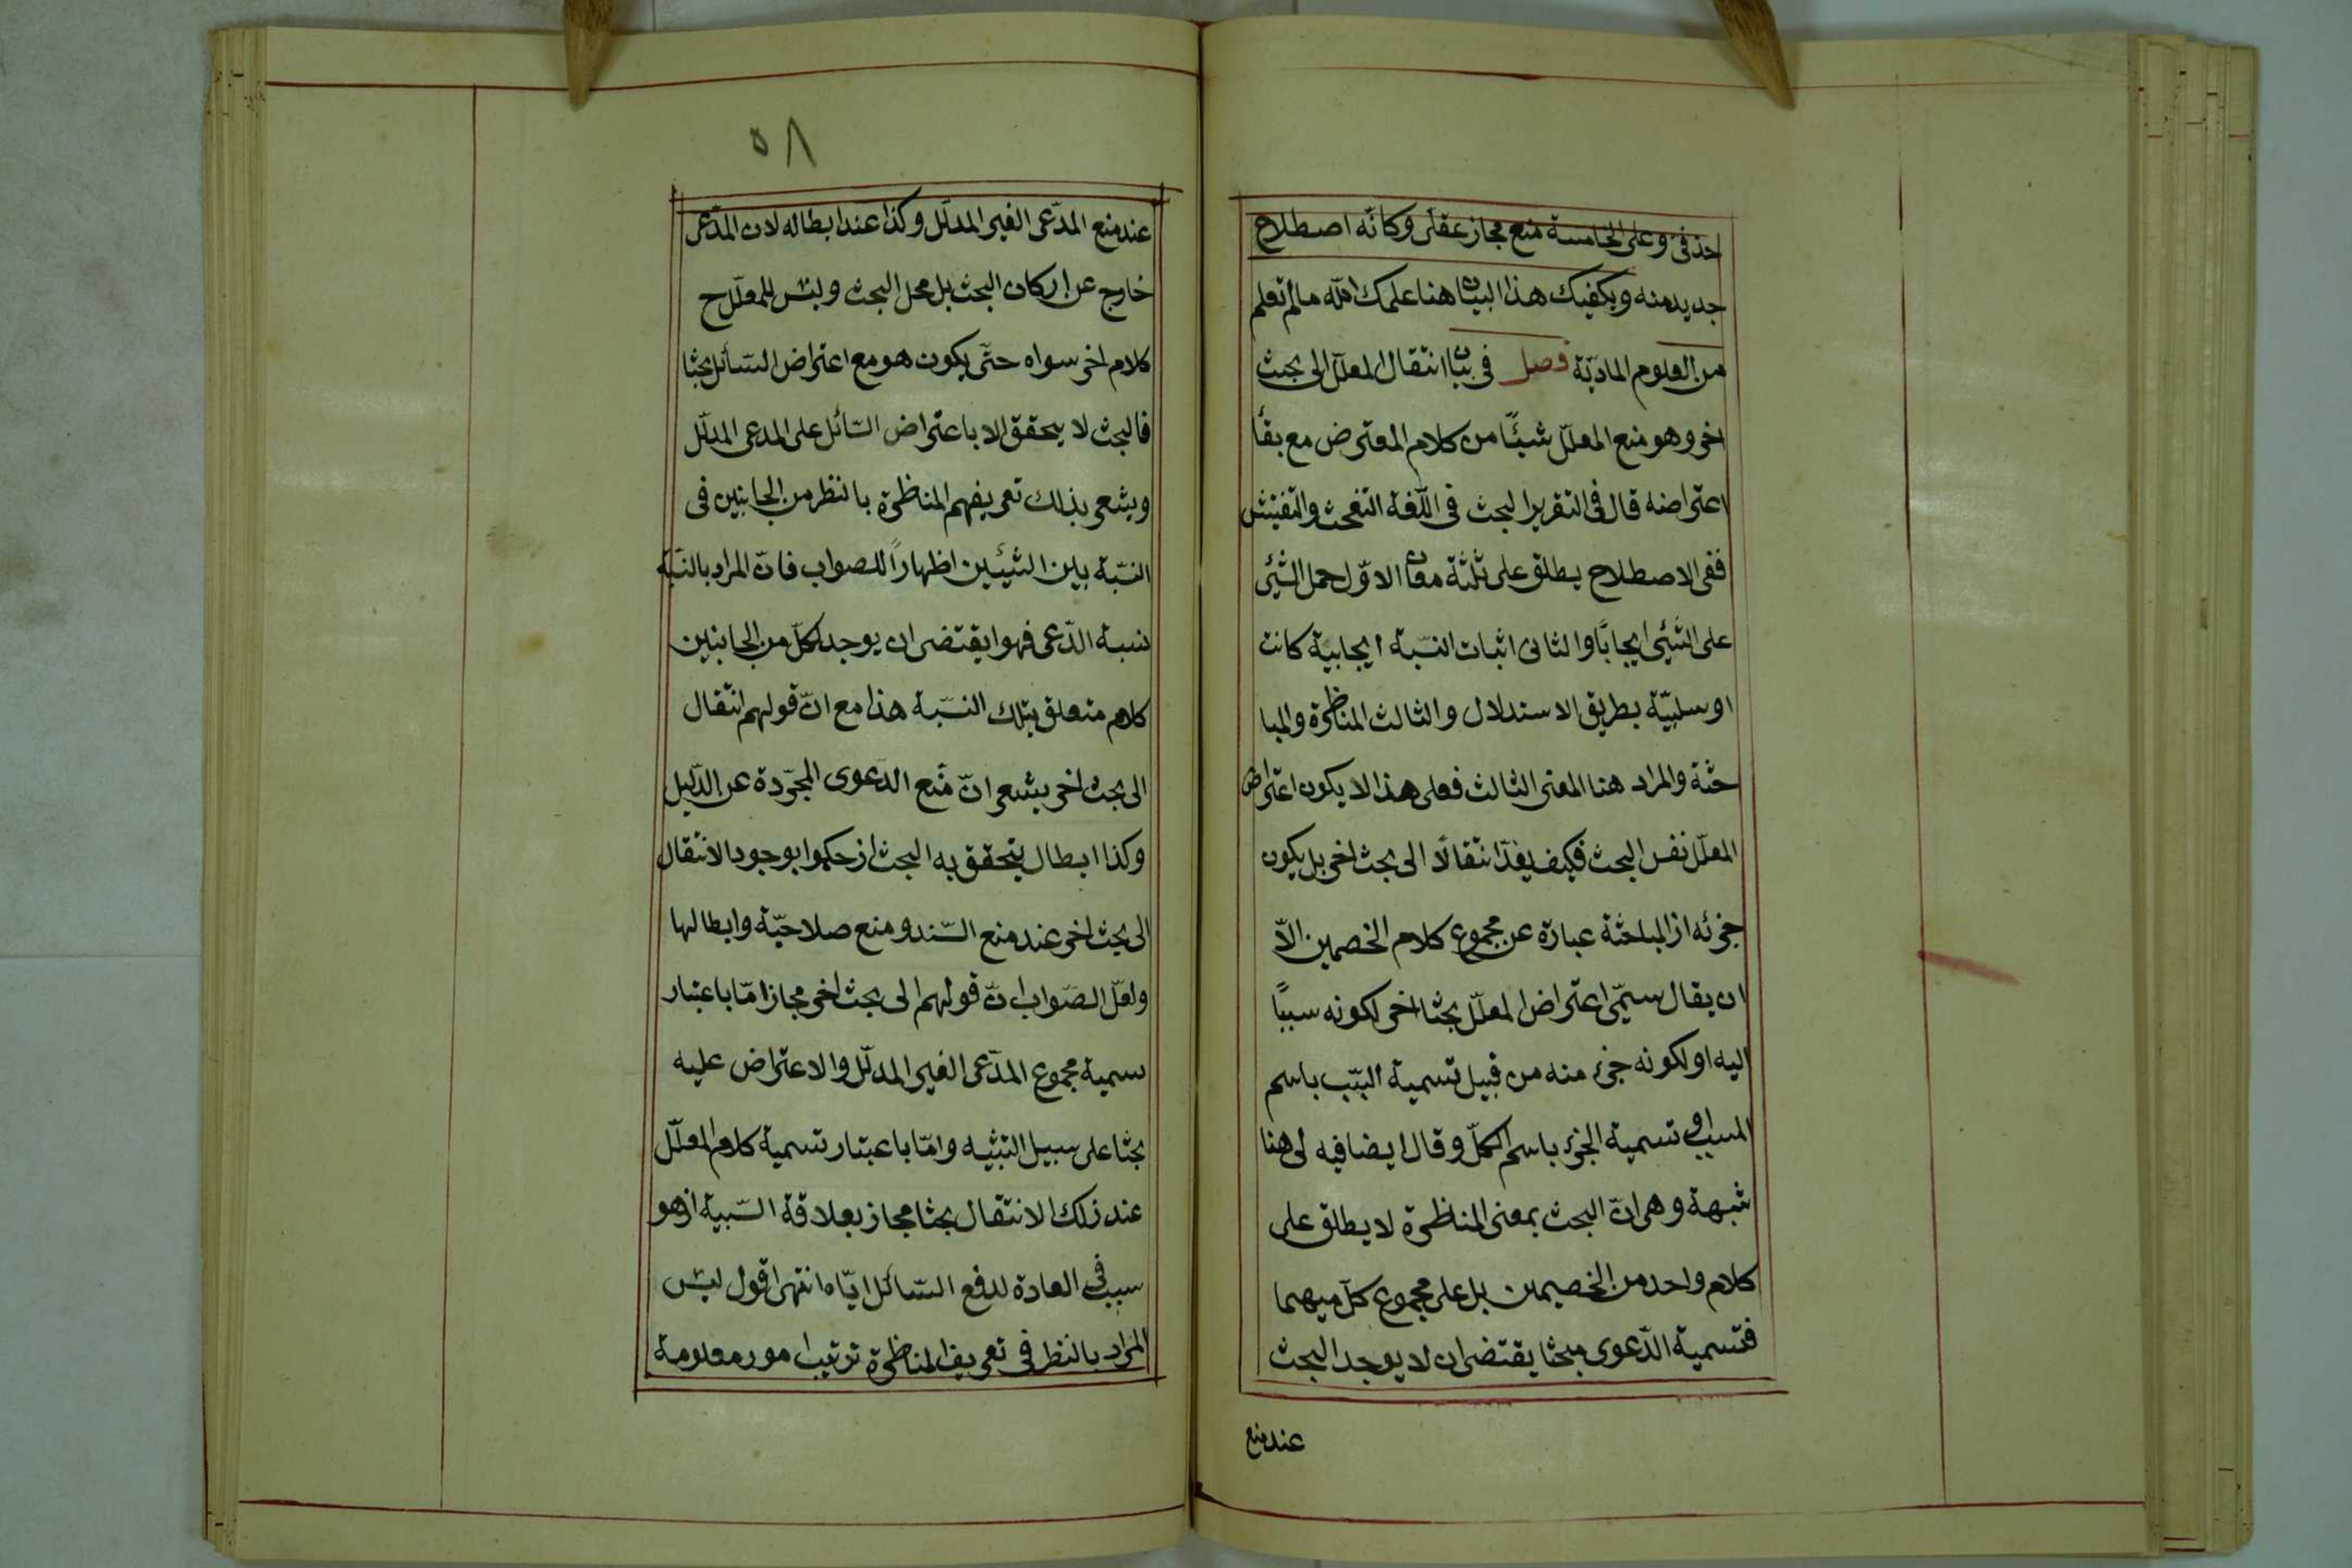 حذفى وعلى الخامسة منع مجاز عقلى وكانّه اصطلاح
جديد منه ويكفيك هذا البيان هنا علمك الله مالم تعلم
من العلوم المادّيّة فصل فى بيان انتقال المعلّل الى بحث
اخر وهو منع المعلّل شيئًا من كلام المعترض مع بقأ
اعتراضه قال فى التقرير البحث فى اللّغة التفحث والتفتيش
ففى الاصطلاح يطلق على ثلثة معان الاوّل حمل الشئ
على الشّئى ايجابًا والثانى اثبات النسّبة ايجابيّة كانت
او سلبيّة بطريق الاستدلال والثالث المناظرة والمبا
حثة والمراد هنا المعنى الثالث فعلى هذا لا يكون اعتراض
المعلّل نفس البحث فكيف يعدّ انتقالًا الى بحث اخر بل يكون
جزئه از المباحثة عبارة عن مجموع كلام الخصمين الاّ
ان يقال سمّى اعتراض المعلّل بحثا اخر لكونه سببًا
اليه او لكونه جزء منه من قبيل تسمية السّبب باسم
المسبب او تسمية الجزء باسم الكلّ وقال ايضا فيه لى هنا
شبهة وهى انّ البحث بمعنى المناظرة لا يطلق على
كلام واحد من الخصيمين بل على مجموع كلّ ميهما
فتسمية الدّعوى مبحثا يقتضى ان لا يوجد البحث
عند منع
٥٨
عند منع المدّعى الغير المدلّل وكذا عند ابطاله لان المدّعى
خارج عن اركان البحث بل محل البحث وليس للمعلّل ح
كلام اخر سواه حتّى يكون هو مع اعتراض السّائل بحثا
فالبحث لا يتحقق الا باعتراض السّائل على المدعى المدلّل
ويشعر بذلك تعريفهم المناظرة بالنظر من الجانبين فى
النسّبة بين الشيئين اظهارًا للصواب فانّ المراد بالنسّبة
نسبة الدّعى فهو ايقتضى ان يوجد لكلّ من الجانبين
كلام متعلق بتلك النسّبة هذا مع انّ قولهم انتقال
الى بحث اخر يشعر انّ مَنع الدّعوى المجرّدة عن الدّليل
وكذا ابطال يتحقق به البحث از حكموا بوجود الانتقال
الى بحث اخر عند منع السّند ومنع صلاحيّة وابطالها
ولعلّ الصّواب انّ قولهم الى بحث اخر مجاز امّا باعتبار
سمية مجموع المدّعى الغير المدلّل والاعتراض عليه
بحثا على سبيل التثبيه وامّا باعتبار تسمية كلام المعلّل
عند زلك الانتقال بحثا مجاز بعلاقة السّبيبة ازهو
سبب فى العادة لدفع السّائل ايّاه انتهى اقول ليس
المراد بالنظر فى تعريف المناظرة ترتيب امور معلومة